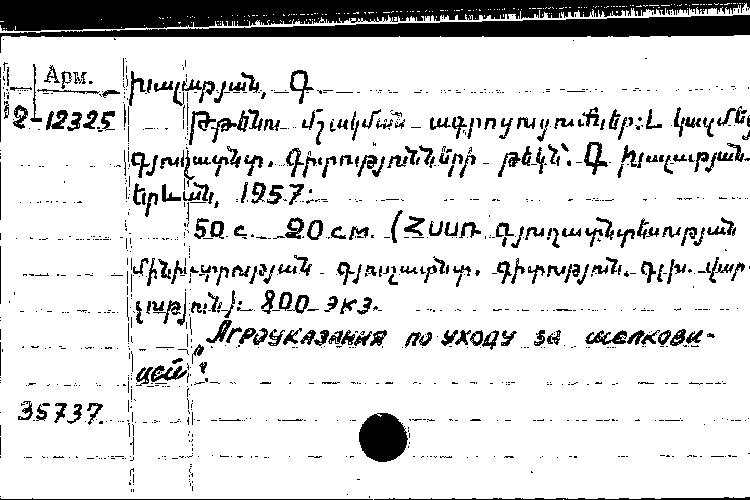 Арм.
Խաչատրյան, Գ.
2-12325 Թթենու մշակման ագրոցուցումներ: Կազմեց
գյուղատնտ. գիտությունների թեկն՝. Գ Խաչատրյան.
Երևան, 1957:
50 с. 20 см. (ՀՍՍՌ գյուղատնտեսության
մինիստրության գյուղատնտ. գիտության. գլխ. վար-
չություն): 800 экз.
„Агроуказания по уходу за шелкови-
цей".
35737.